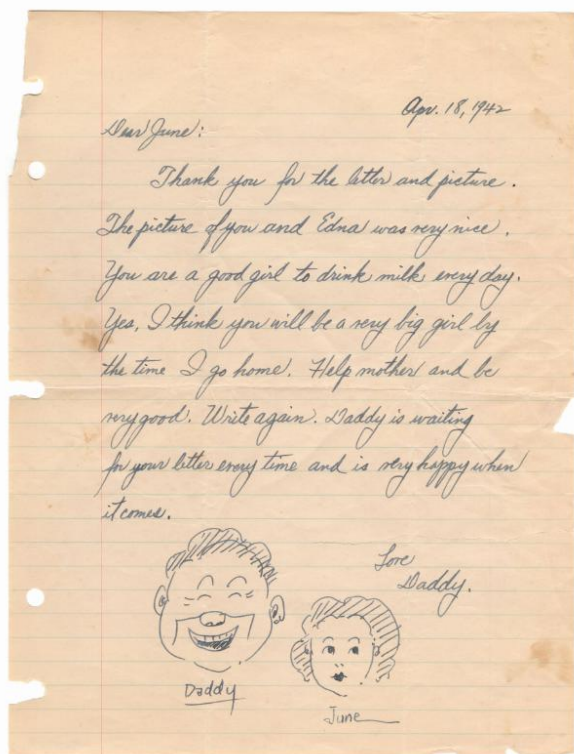 Apr. 18, 1942
Dear June:
Thank you for the letter and picture.
The picture of you and Edna was very nice.
You are a good girl to drink milk every day.
Yes, I think you will be a very big girl by
the time I go home. Help mother and be
very good. Write again. Daddy is waiting
for your letter every time and is very happy when
it comes.
Love
Daddy.
Daddy
June